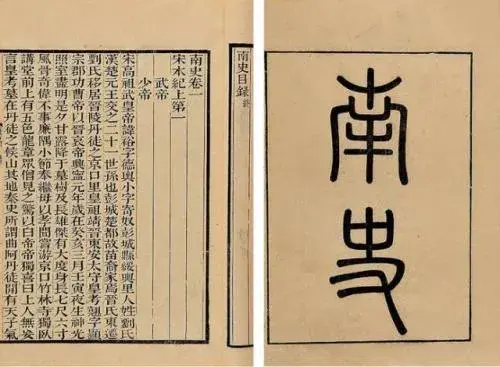 南史
南史目錄終
南史卷一
宋本紀上第一
武帝
少帝
宋高祖武皇帝諱裕字德輿小字寄奴彭城縣綏輿里人姓劉氏
漢楚元王交之二十一世孫也彭城楚都故苗裔家焉晉氏東遷
劉氏移居晉陵丹徒之京口里皇祖靖晉東安太守皇考翹字顯
宗郡功曹帝以晉哀帝興寧元年歲在癸亥三月壬寅夜生神光
照室盡明是夕甘露降于墓樹及長雄傑有大度身長七尺六寸
風骨奇偉不事廉隅小節奉繼母以孝聞嘗游京口竹林寺獨臥
講堂前上有五色龍章眾僧見之驚以白帝帝獨喜曰上人無妄
言皇考墓在丹徒之候山其地秦史所謂曲阿丹徒間有天子氣